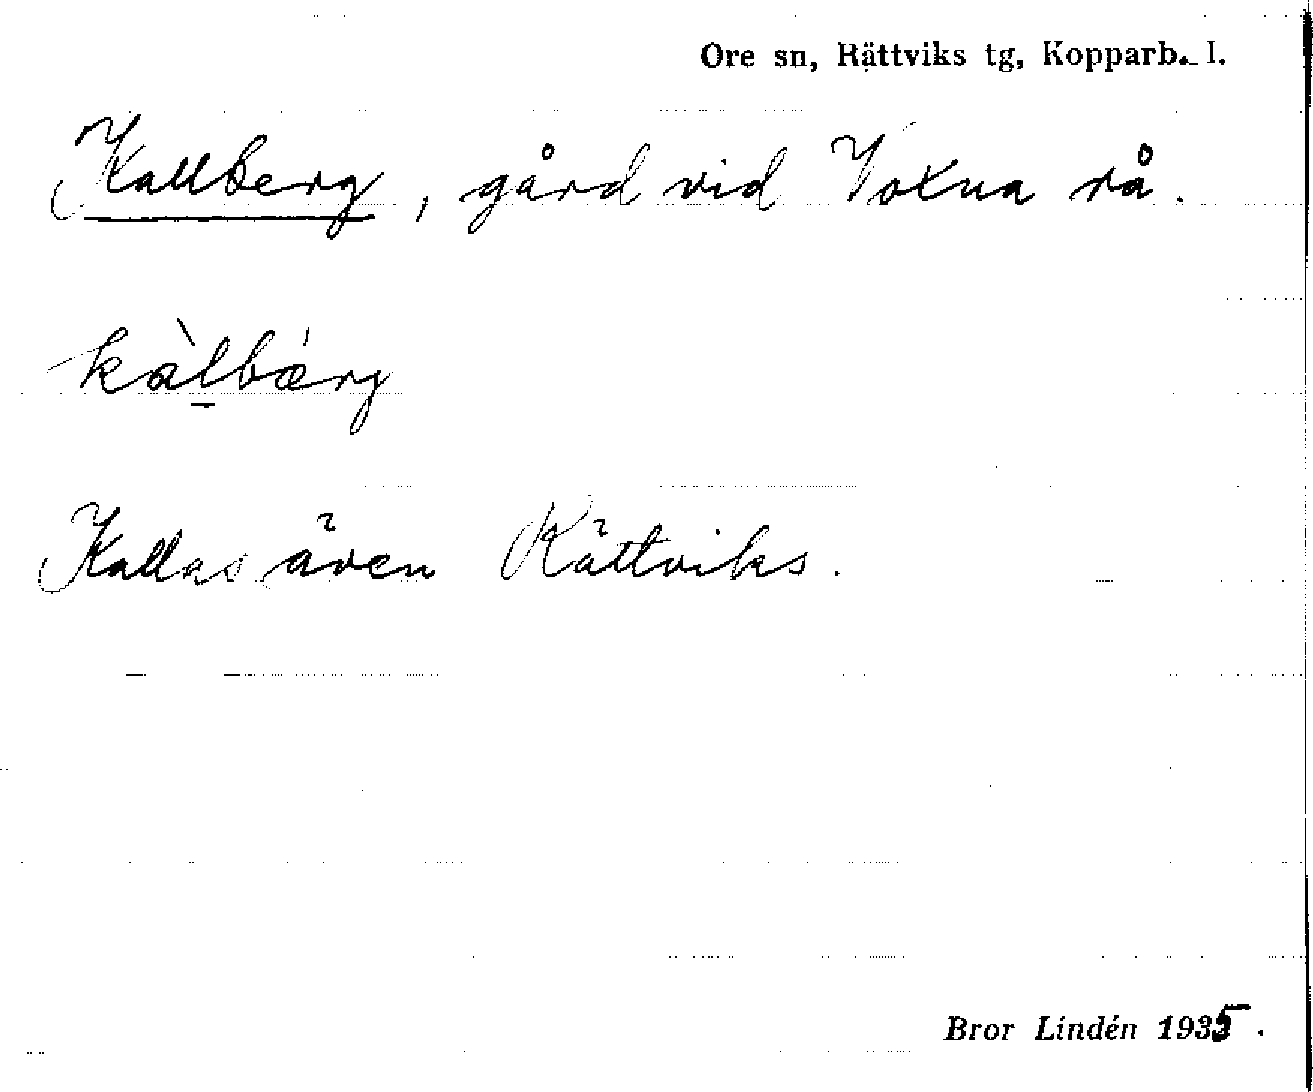 Ore sn, Rättviks tg, Kopparb. l.
Kallberg, gård vid Voxna rå.
kàlbærg
Kallas även Rättviks.
Bror Lindén 1935.